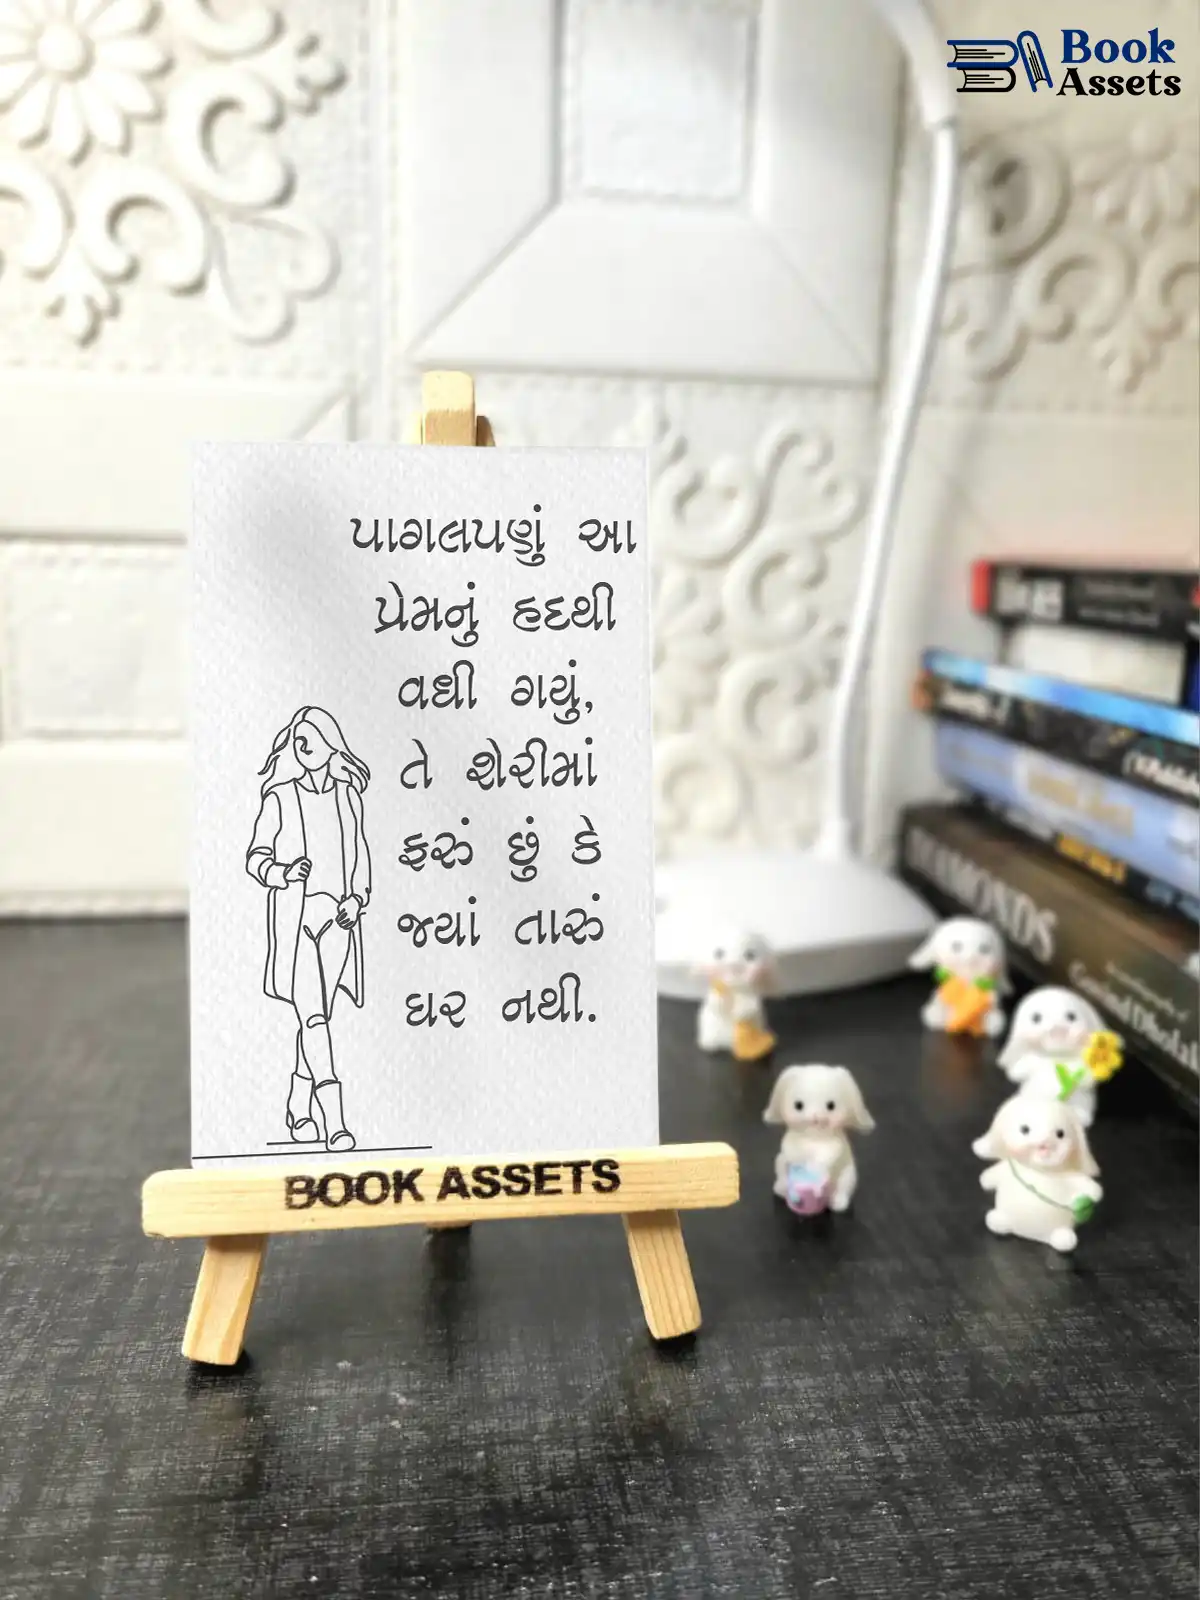 Book
Assets
પાગલપણું આ
પ્રેમનું હદથી
વધી ગયું,
તે શેરીમાં
ફરું છું કે
જ્યાં તારું
ઘર નથી.
BOOK ASSETS
DIAMONDS
Govind Dholakia